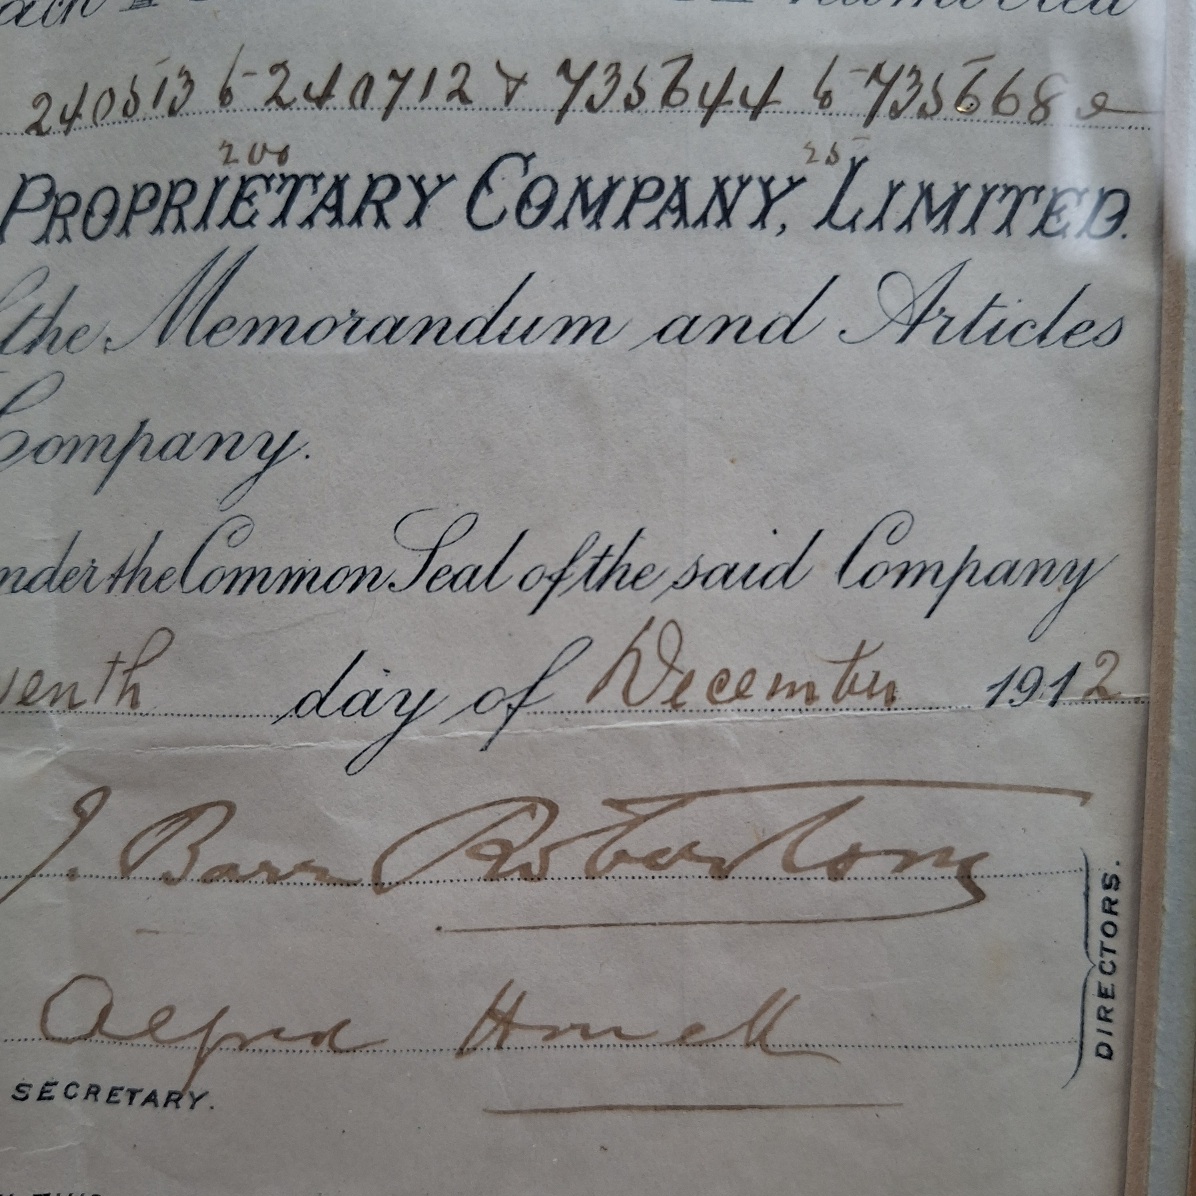 numbered
240513 to 240712 & 735644 to 735668
200 25
PROPRIETARY COMPANY, LIMITED.
the Memorandum and Articles
Company.
nder the Common Seal of the said Company
venth day of December 1912
J. Barr Robertson
DIRECTORS.
Alfred Howell
SECRETARY.